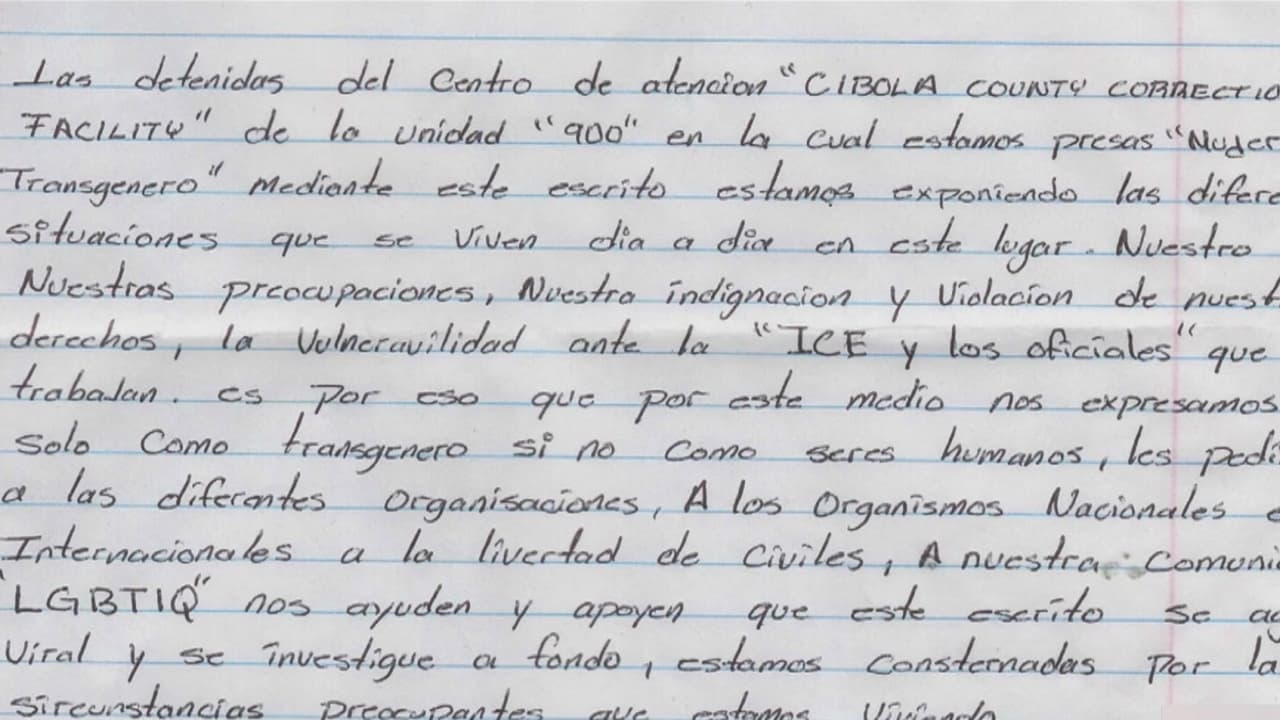 Las detenidas del Centro de atencion "CIBOLA COUNTY CORRECTIO
FACILITY" de la unidad "900" en la cual estamos presas "Mujer
Transgenero" mediante este escrito estamos exponiendo las difere
situaciones que se viven dia a dia en este lugar. Nuestro
Nuestras preocupaciones, Nuestra indignacion y Violacion de nuest
derechos, la Vulneravilidad ante la "ICE y los oficiales" que
trabaJan. es por eso que por este medio nos expresamos
solo Como transgenero si no como seres humanos, les pedi
a las diferentes organisaciones, A los Organismos Nacionales e
Internacionales a la livertad de Civiles, A nuestra Comuni
"LGBTIQ" nos ayuden y apoyen que este escrito se ag
Viral y se investigue a fondo, estamos consternadas por la
sircunstancias preocupantes que estamos Viviendo